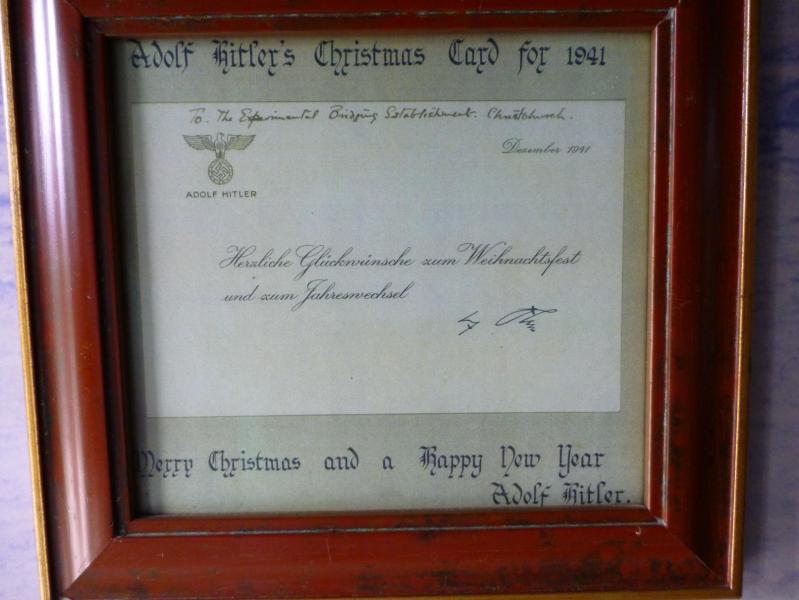 Adolf Hitler's Christmas Card for 1941
To. The Experimental Bridging Establishment. Christchurch.
Dezember 1941
ADOLF HITLER
Herzliche Glückwünsche zum Weihnachtsfest
und zum Jahreswechsel
Merry Christmas and a Happy New Year
Adolf Hitler.